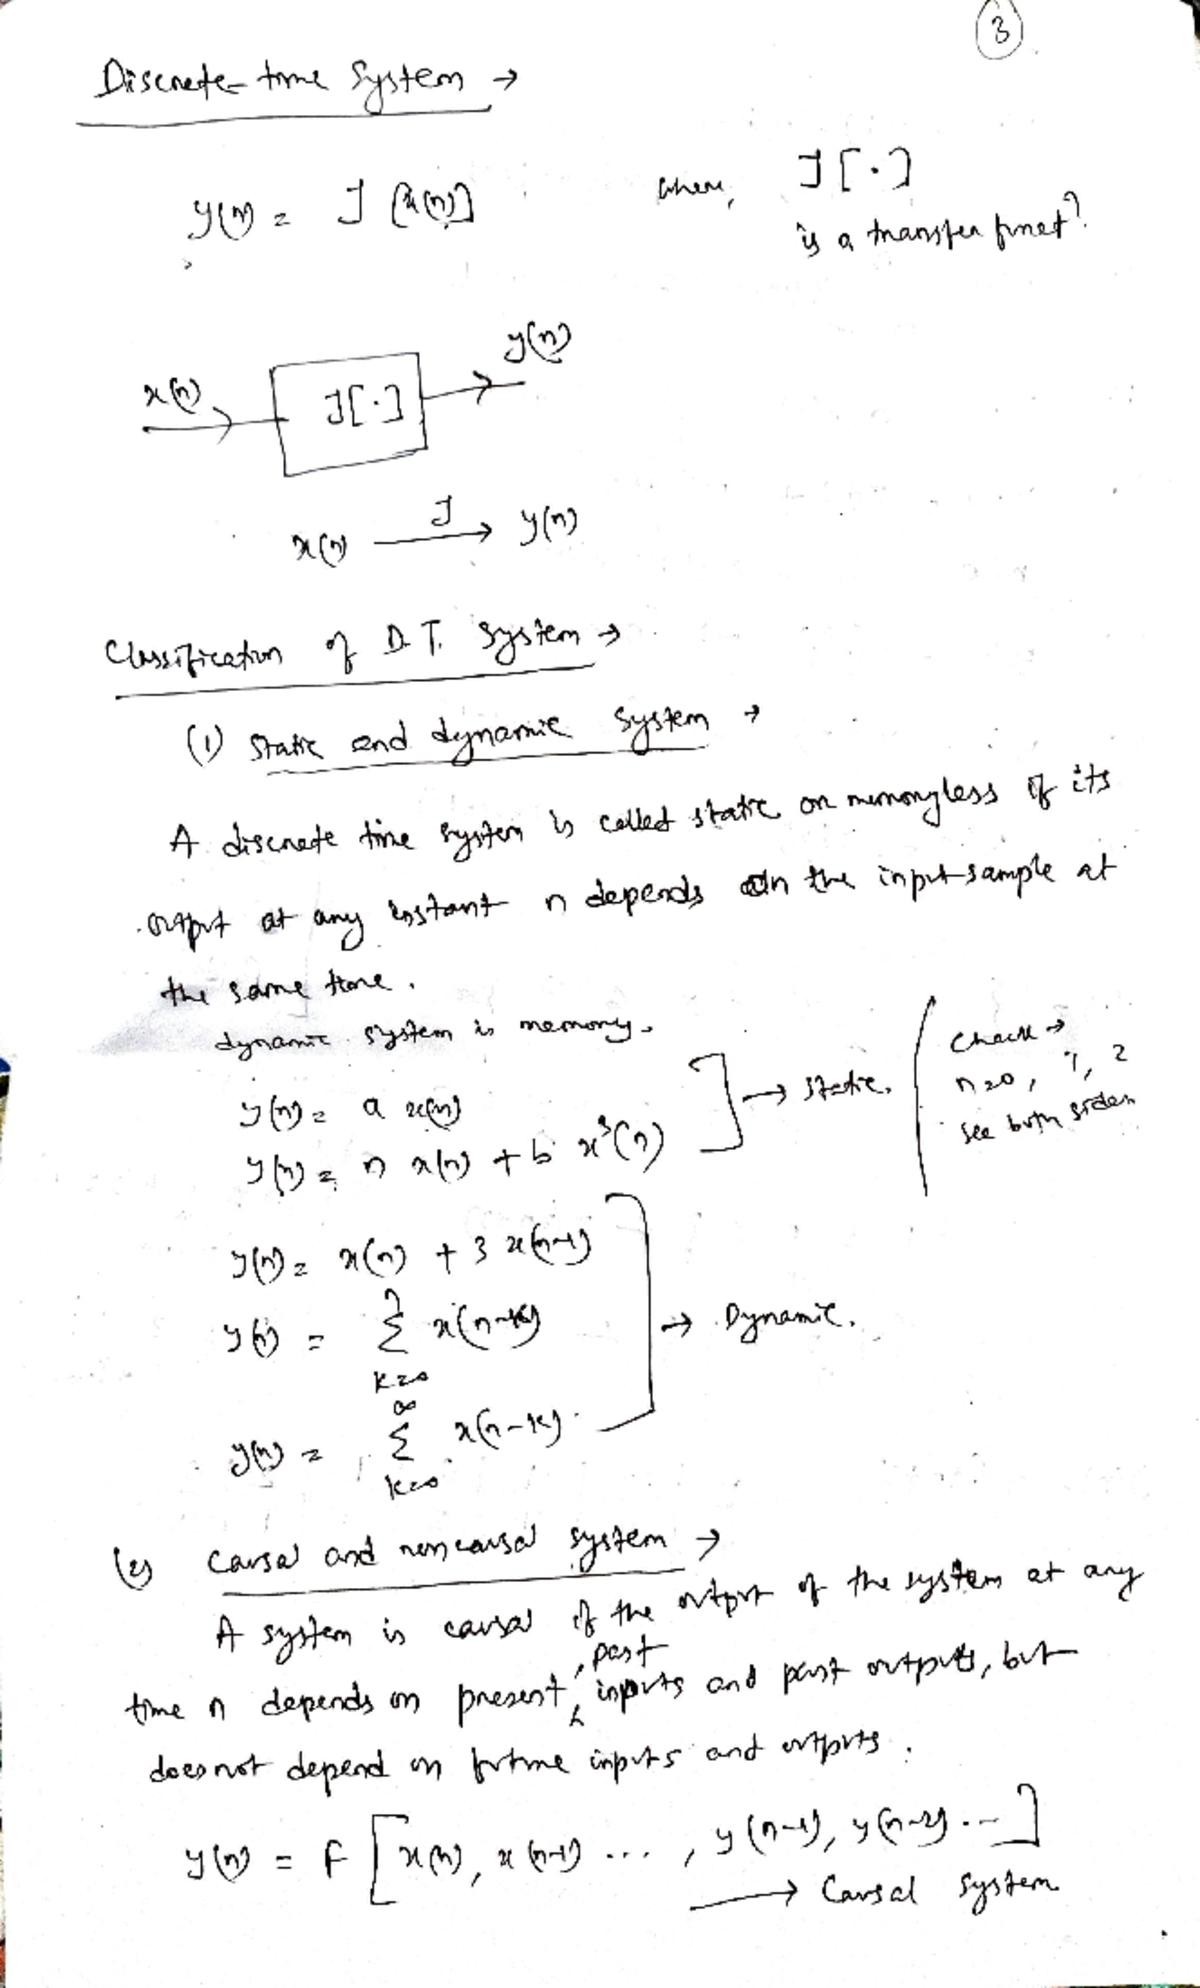 3
Discrete-time System →
y(n) = J [x(n)] where, J[·]
is a transfer funct?
x(n) J[·] y(n)
x(n) —J→ y(n)
Classification of D.T. System →
(1) Static and dynamic System →
A discrete time system is called static or memoryless if its
output at any instant n depends on the input sample at
the same time.
dynamic system is memory.
y(n) = a x(n)
y(n) = n x(n) + b x³(n) ] → Static.
Check →
n=0, 1, 2
See both sides
y(n) = x(n) + 3 x(n-1)
y(n) = Σ_{k=0}^{n} x(n-k) ] → Dynamic.
y(n) = Σ_{k=0}^{∞} x(n-k)
(2) Causal and noncausal system →
A system is causal if the output of the system at any
time n depends on present, past inputs and past outputs, but
does not depend on future inputs and outputs.
y(n) = F [x(n), x(n-1) ..., y(n-1), y(n-2) ...]
→ Causal System